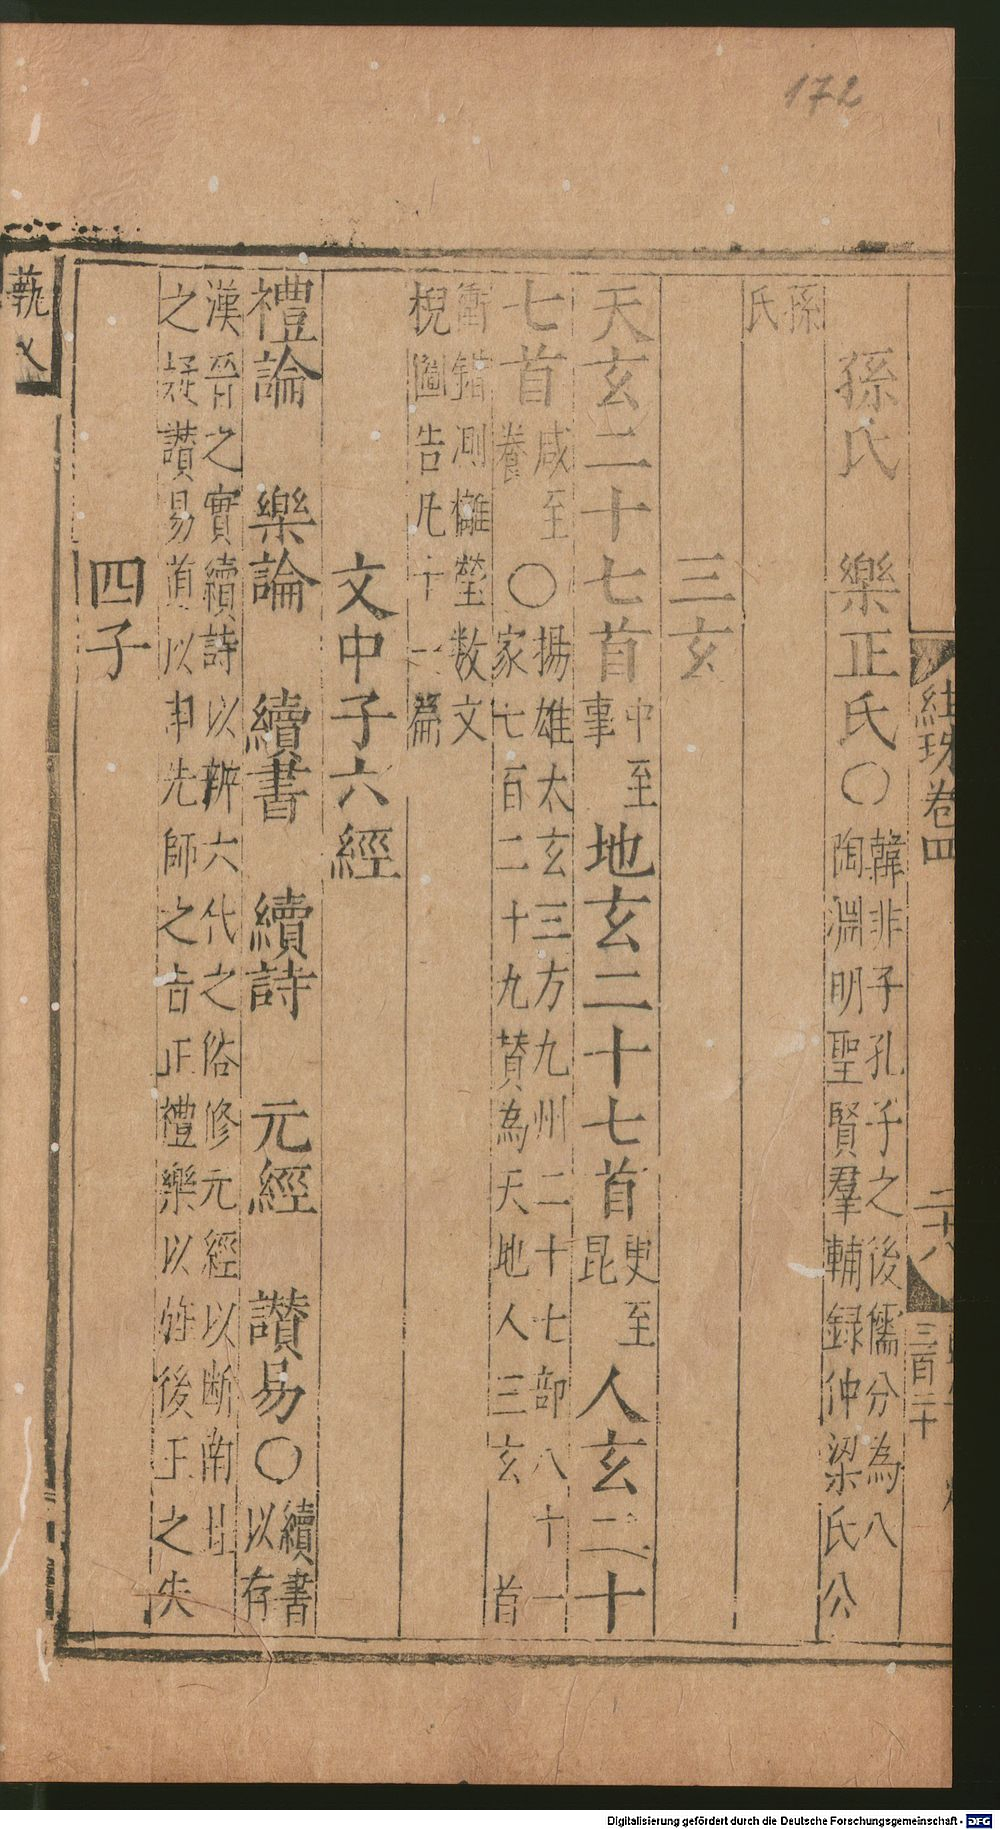 172
孫氏　樂正氏〇韓非子孔子之後儒分為八
陶淵明聖賢羣輔録仲梁氏公
孫
氏
三玄
天玄二十七首中至
事地玄二十七首更至
昆人玄二十
七首咸至
養〇揚雄太玄三方九州二十七部八十一
家七百二十九賛為天地人三玄　首
衝錯測攡瑩数文
棿圖告凡十一篇
文中子六經
禮論　樂論　續書　續詩　元經　讃易〇續書
以存
漢晉之實續詩以辨六代之俗修元經以断南北
之疑讃易道以申先師之旨正禮樂以旌後王之失
四子
紺珠卷四
二十八
三百二十
藝文
Digitalisierung gefördert durch die Deutsche Forschungsgemeinschaft - DFG